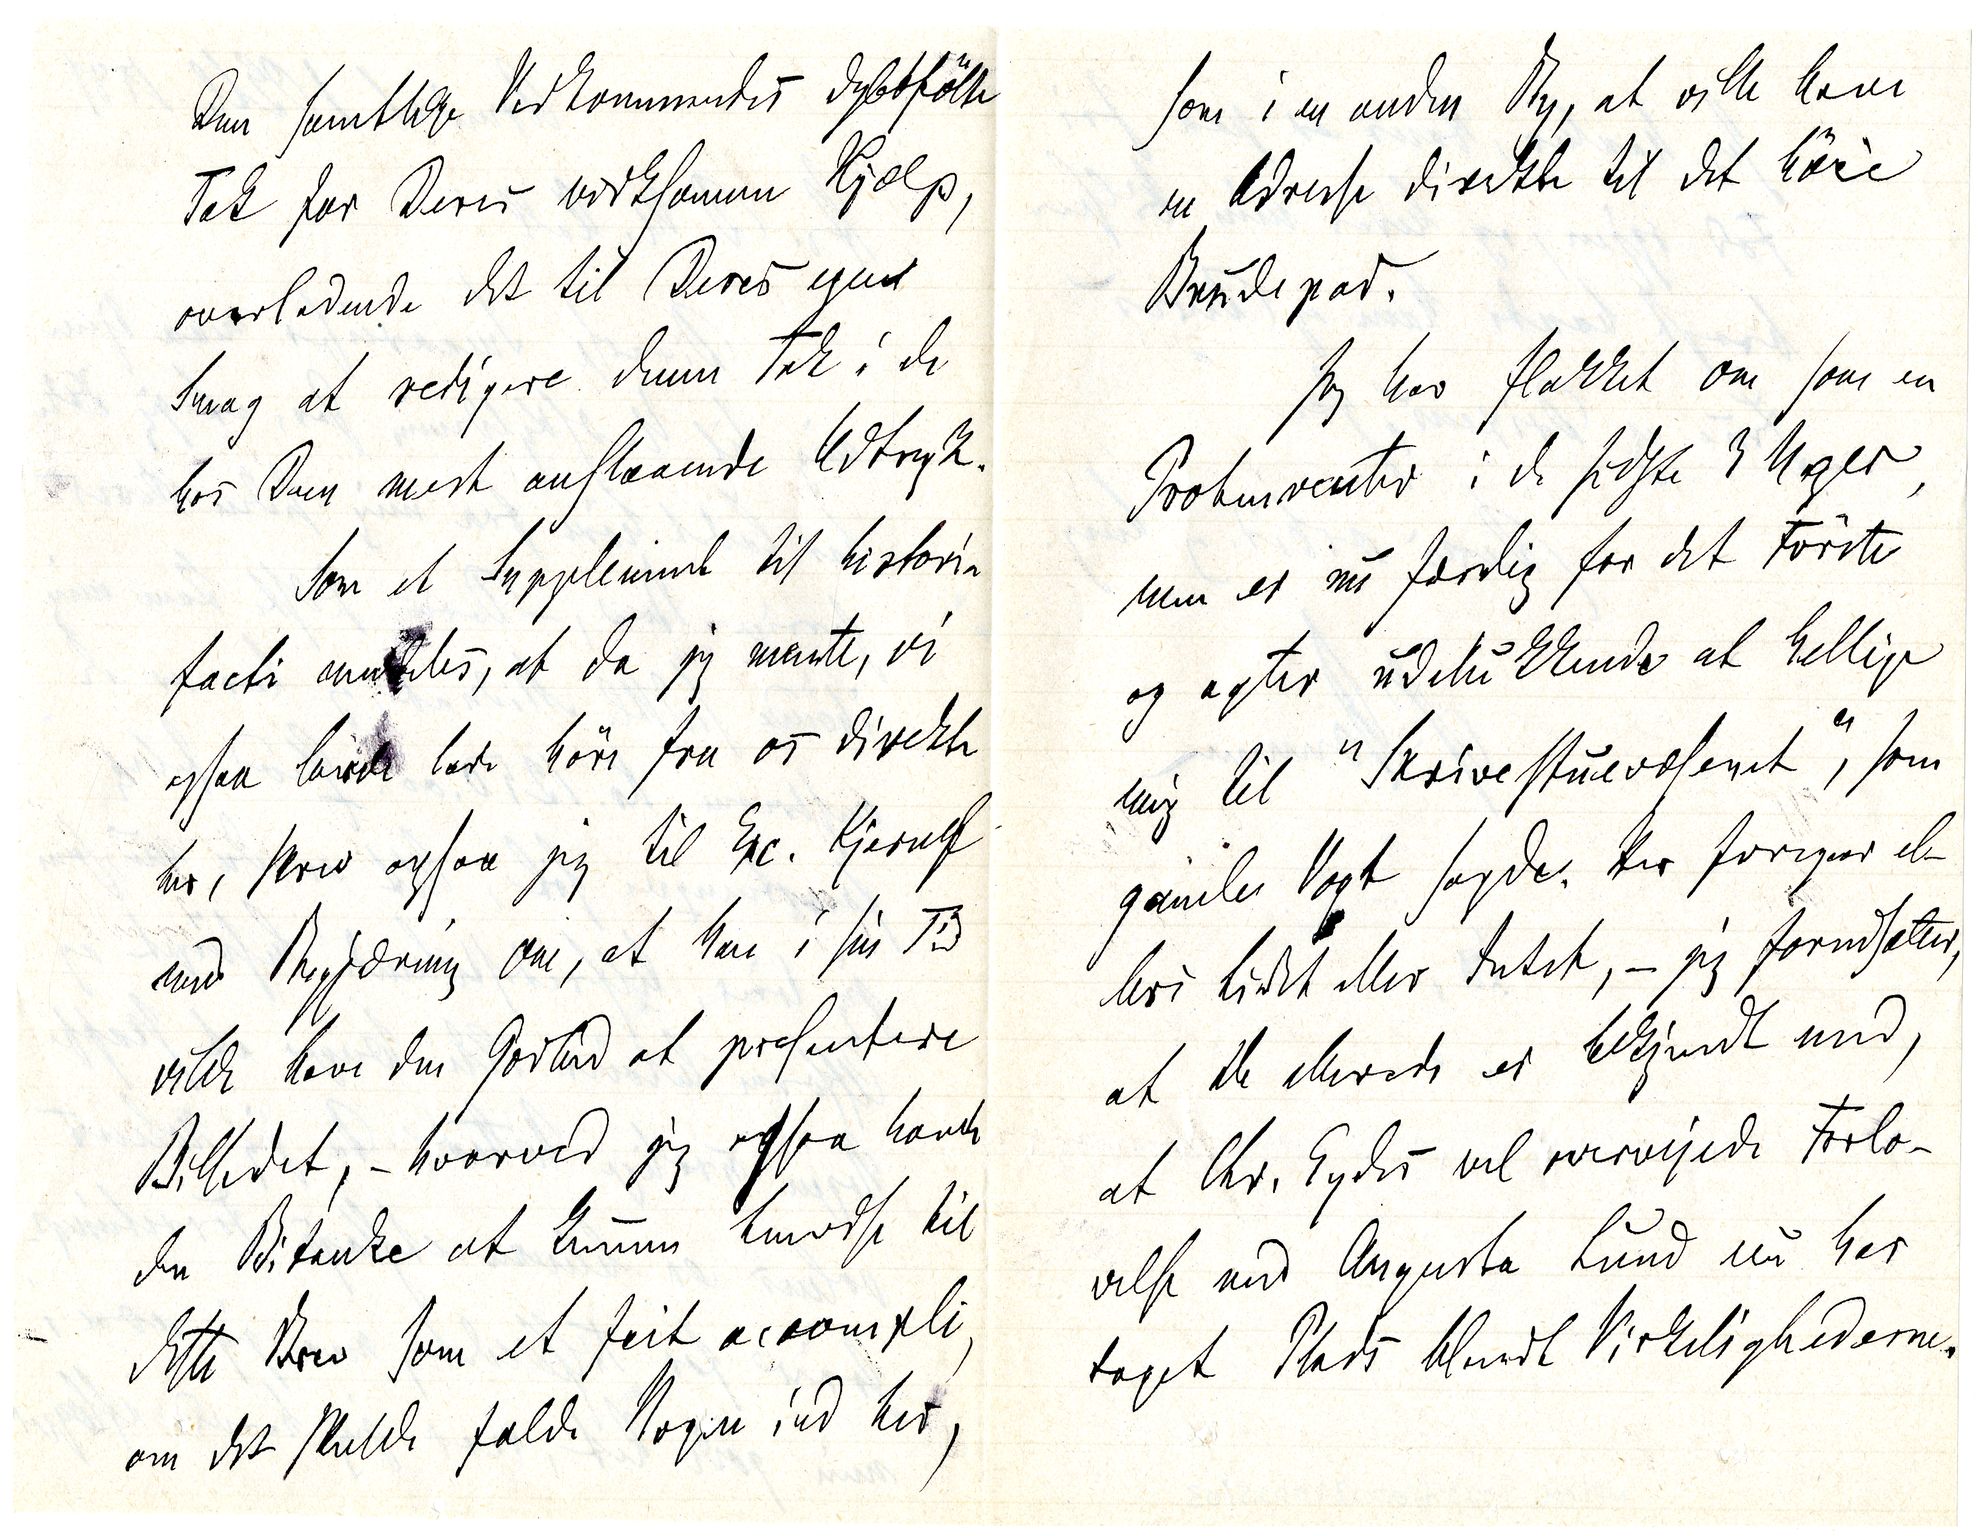 Dem samtlige Vedkommendes dybtfölte
Tak for Deres virksomme Hjælp,
overladende det til Deres egen
Smag at redigere denne Tak i de
hos Dem mest anslaaende Udtryk.
Som et Supplement til historia
facti meddeles, at da jeg mente, vi
ogsaa burde lade höre fra os direkte
her, skrev ogsaa jeg til Exc. Kjerulf
med Begjæring om, at han i sin Tid
vilde have den Godhed at presentere
Billedet, – hvorved jeg ogsaa havde
den Bitanke at kunne henvise til
dette Brev som et fait accompli,
om det skulde falde Nogen ind her,
som i en anden By, at ville have
en Adresse direkte til det höie
Brudepar.
Jeg har flakket om som en
Probenreuter i de sidste 3 Uger,
men er nu færdig for det Förste
og agter udelukkende at hellige
mig til "Skrivestuevæsenet", som
gamle Vogt sagde. Her foregaar el-
lers lidet eller Intet, – jeg forudsætter,
at De allerede er bekjendt med,
at Chr. Eydes vel overveiede Forlo-
velse med Augusta Lund nu har
taget Plads blandt Virkelighederne.